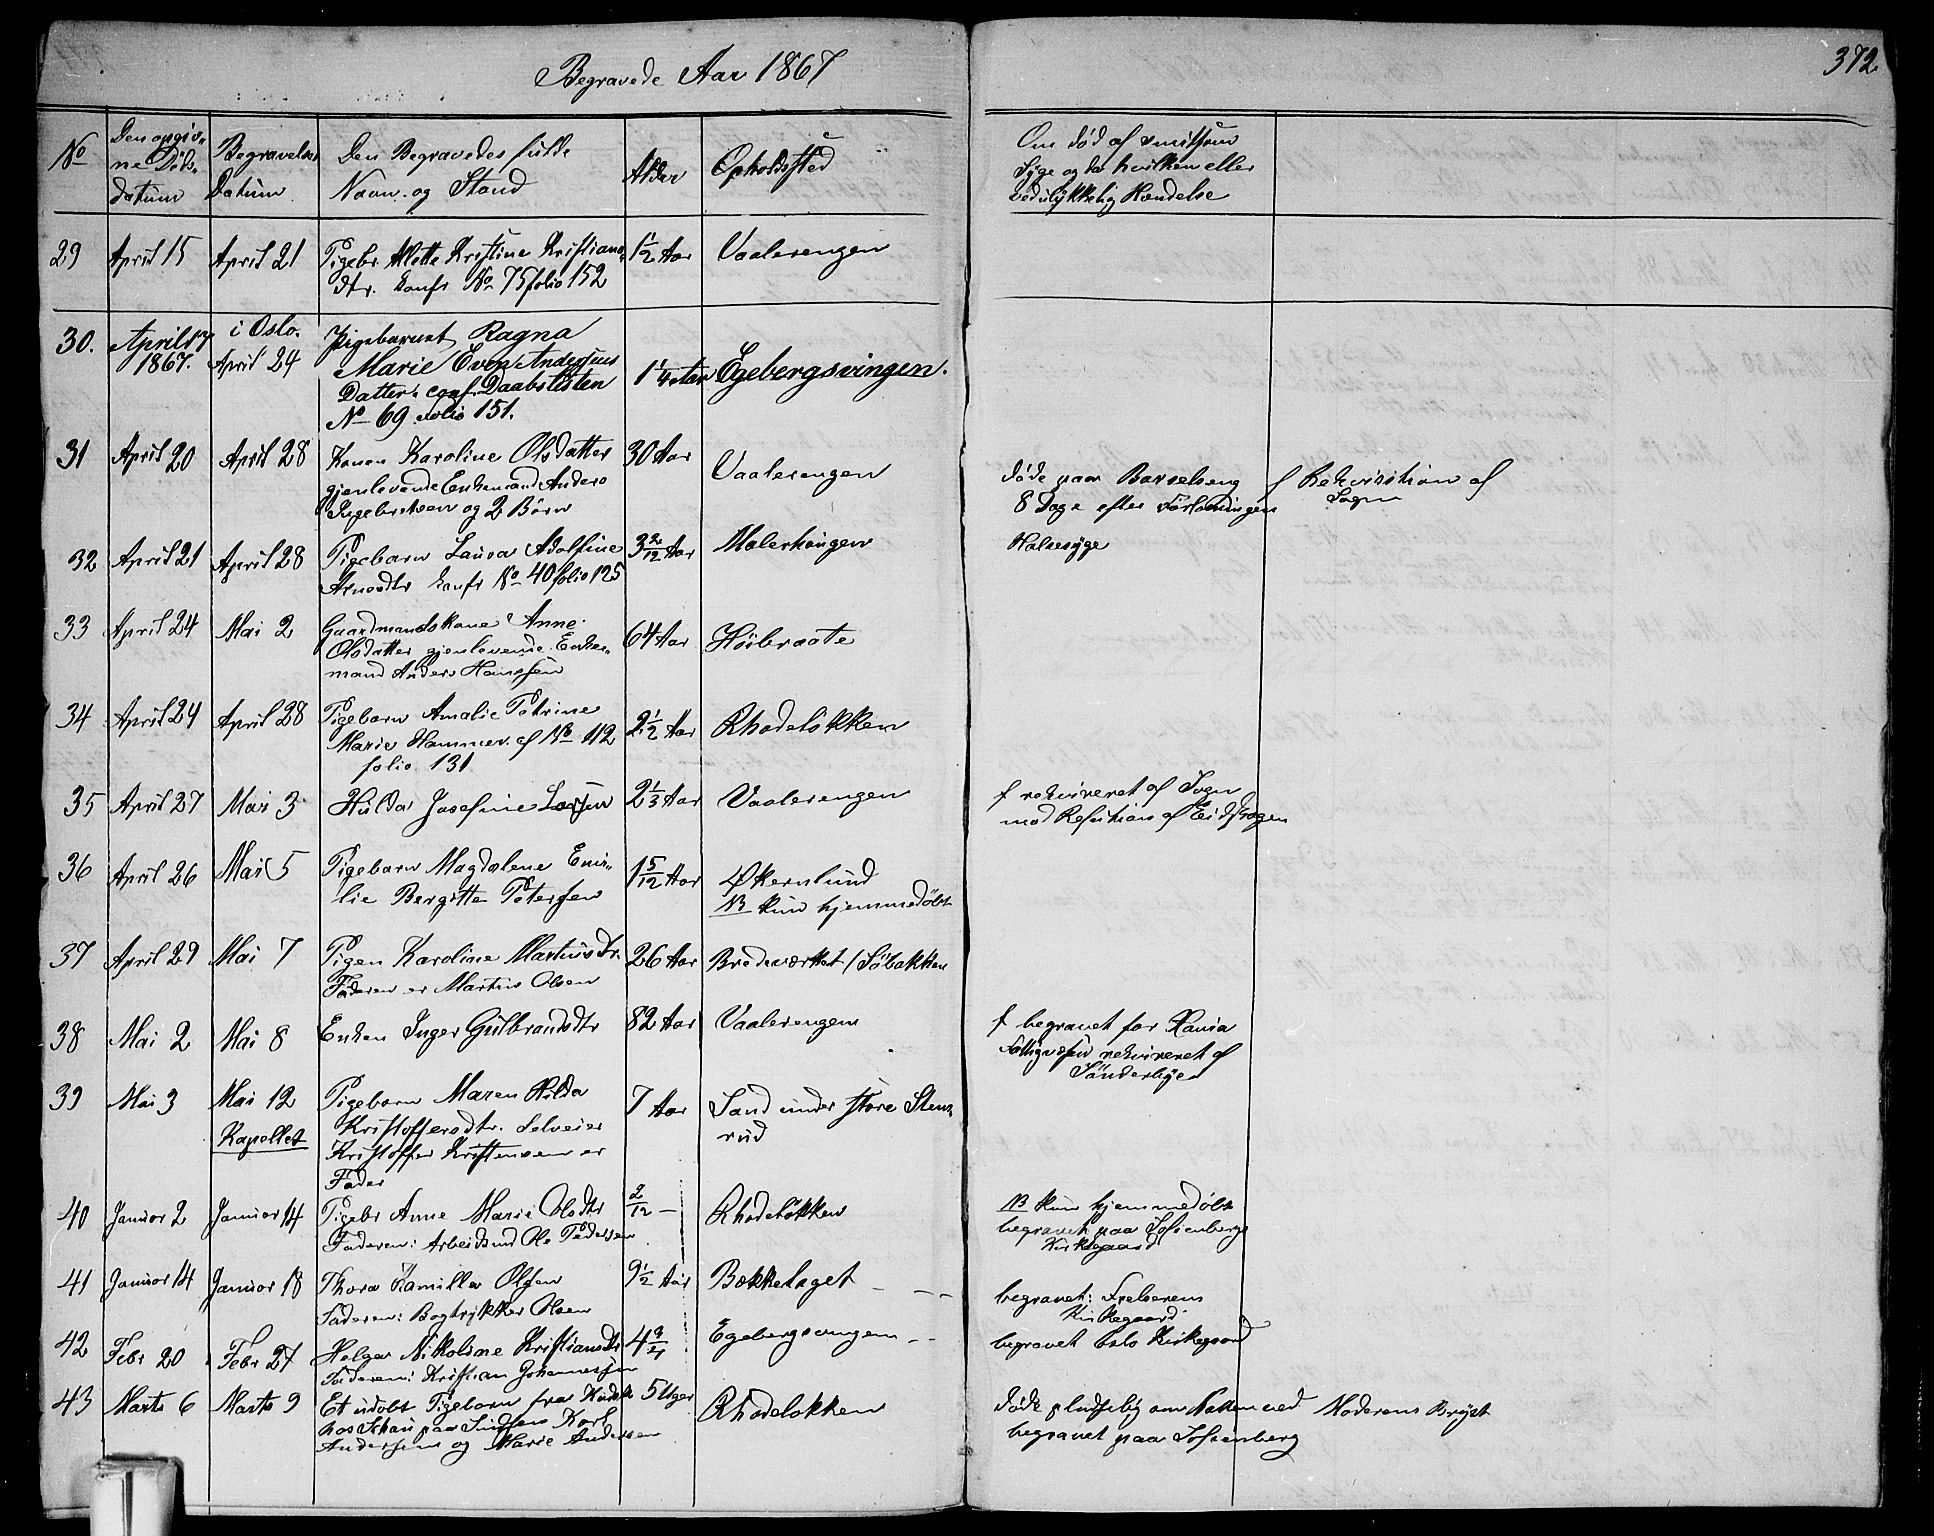 Begravede Aar 1867
372
No
Den opgiv-
ne Døds-
datum
Begravelses
Datum
Den Begravedes fulde
Navn og Stand
Alder
Opholdssted
Om død af smitsom
Syge og da hvilken eller
ved ulykkelig Hændelse
29 April 15 April 21 Pigebr. Alette Kristine Kristians- 1 1/2 Aar Vaalerengen
dtr. konfr No 75 folio 152
30. April 17 i Oslo. Pigebarnet Ragna
1867. April 24 Marie Even Andersens 1 1/4 Aar Egebergsvingen.
Datter conf. Daabslisten
No 69 folio 151.
31 April 20 April 28 Konen Karoline Olsdatter 30 Aar Vaalerengen
gjenlevende Enkemand Anders
Ingebretsen og 2 Børn
døde paa Barselseng f Rekvisition af
8 Dage efter Forløsningen Sogn
32 April 21 April 28 Pigebarn Laura Adolfine 3 2/12 Aar Malerhaugen Halsesyge
Arnesdtr konfr No 40 folio 125
33 April 24 Mai 2 Gaardmandskone Anne 64 Aar Høibraate
Olsdatter gjenlevende Enke-
mand Anders Hanssen
34 April 24 April 28 Pigebarn Amalie Petrine 2 1/2 Aar Rhodeløkken
Marie Hammer cf No 112
folio 131
35 April 27 Mai 3 Hulda Josefine Larsen 2 1/3 Aar Vaalerengen
f rekvireret af Sogn
med Refusion af Eidskogen
36 April 26 Mai 5 Pigebarn Magdalene Emi- 1 5/12 Aar Økernlund
lie Bergitte Petersen NB kun hjemmedøbt
37 April 29 Mai 7 Pigen Karoline Martinsdtr. 26 Aar Bredeværket / Søbakken
Faderen er Martin Olsen
38 Mai 2 Mai 8 Enken Inger Gulbrandsdtr 82 Aar Vaalerengen
f begravet for
Fattigvæsen rekvireret af
39 Mai 3 Mai 12 Pigebarn Maren Hilda 7 Aar Sand under store Stens-
Kapellet Kristoffersdtr. Selveier rud
Kristoffer Kristensen er
Fader
40 Januar 2 Januar 14 Pigebr Anne Marie Olsdtr 2/12 — Rhodeløkken
Faderen: Arbeidsmd Ole Pedersen
NB kun hjemmedøbt
begravet paa Sofienbergs
Kirkegaard
41 Januar 14 Januar 18 Thora Kamilla Olsen 9 1/2 Aar Bækkelaget
Faderen: Bogtrykker Olsen
begravet: Frelserens
Kirkegaard
42 Febr 20 Febr 27 Helga Nikoline Kristiansdtr 4 3/4 Egebergsvingen begravet Oslo Kirkegaard
Faderen: Kristian Johannessen
43 Marts 6 Marts 9 Et udøbt Pigebarn 5 Uger Rhodeløkken
Karl
Andersen og Marie Andersen
døde pludselig om Natten ved Moderens Bryst
begravet paa Sofienberg